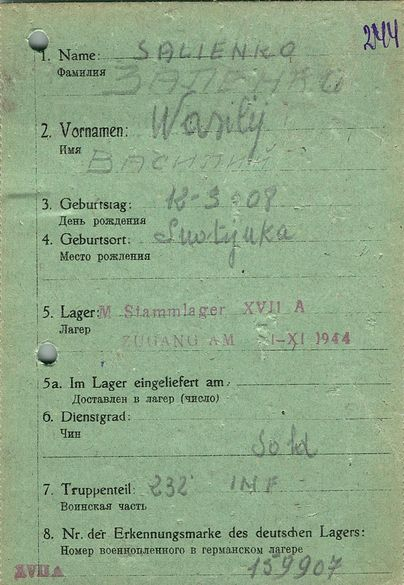 244
1. Name: SALIENKO
Фамилия ЗАЛЕНКО
2. Vornamen: Wasilij
Имя ВАСИЛИЙ
3. Geburtstag: 12-3-08
День рождения
4. Geburtsort:
Место рождения
5. Lager: M Stammlager XVII A
Лагер
ZUGANG AM 1-XI 1944
5a. Im Lager eingeliefert am:
Доставлен в лагер (число)
6. Dienstgrad:
Чин
Sold
7. Truppenteil: 232 INF
Воинская часть
8. Nr. der Erkennungsmarke des deutschen Lagers:
Номер военнопленного в германском лагере
159907
XVII A